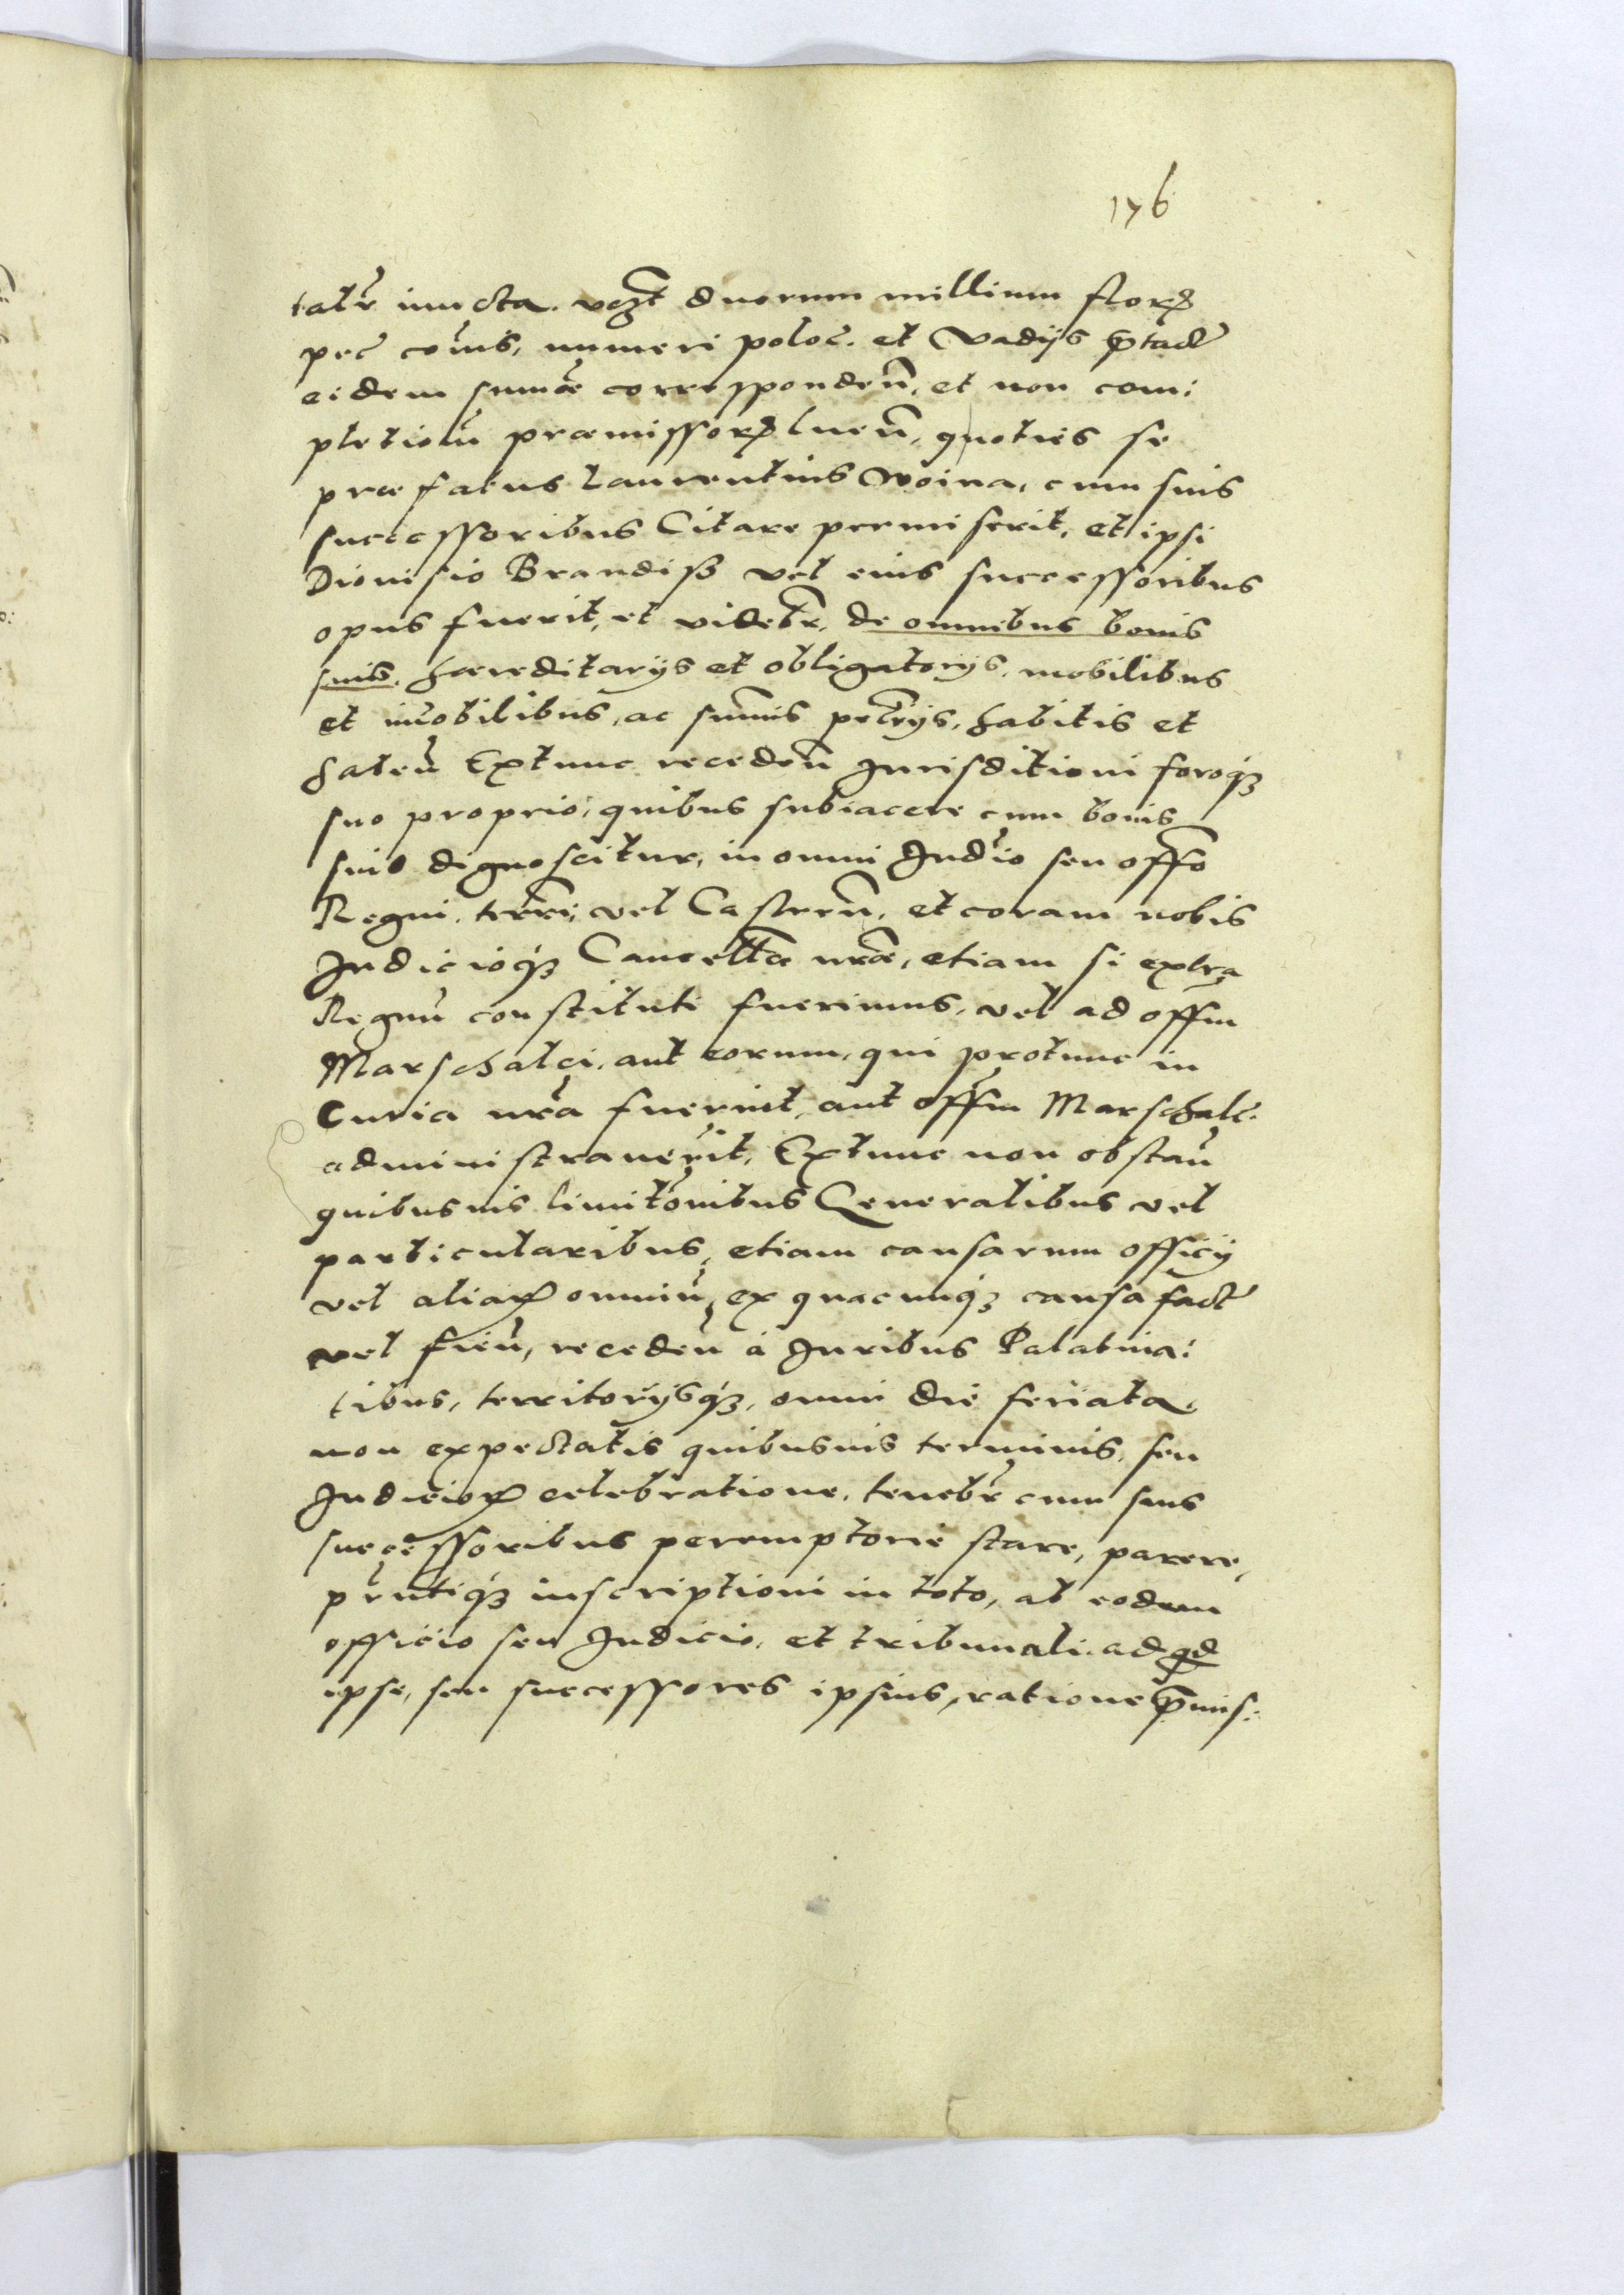 176
talr iuncta. vept duorum millium florꝝ
pec cois, numeri poloc. et Vadijs ptact
eidem sumæ corresponden, et non com:
pletiou præmissorꝝ luen, quoties se
præfatus Laurentius Woina, cum suis
successoribus Citare permiserit, et ipsi
Dionisio Brandiss vel eius successoribus
opus fuerit, et videbr, de omnibus bonis
suis, hæreditarijs et obligatorijs, mobilibus
et imobilibus, ac sumis petrijs, habitis et
haben Extunc receden Jurisditioni foroqꝫ
suo proprio, quibus subiacere cum bonis
suis dignoscitur, in omni Judio seu offo
Regni, terre, vel Castren, et coram nobis
Judicioqꝫ Cancellæ nræ, etiam si extra
Regnu constituti fuerimus, vel ad offm
Marschalci, aut eorum, qui protunc in
Curia nra fuerint, aut offm Marschalc.
administrauerit, Extunc non obstan
quibusuis limitonibus Generalibus vel
particularibus, etiam causarum officij
vel aliaꝝ omniu, ex quacunqꝫ causa fact
vel fien, receden à Juribus Palatina:
tibus, territorijsqꝫ, omni die feriata,
non expectatis quibusuis terminis, seu
Judicioꝝ celebratione, tenebr cum suis
successoribus peremptorie stare, parere,
prntiqꝫ inscriptioni in toto, ab eodem
officio seu Judicio, et tribunali, ad qd
ipse, seu successores ipsius, ratione pmis: